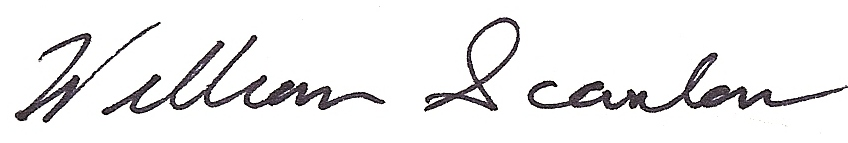 William Scanlon